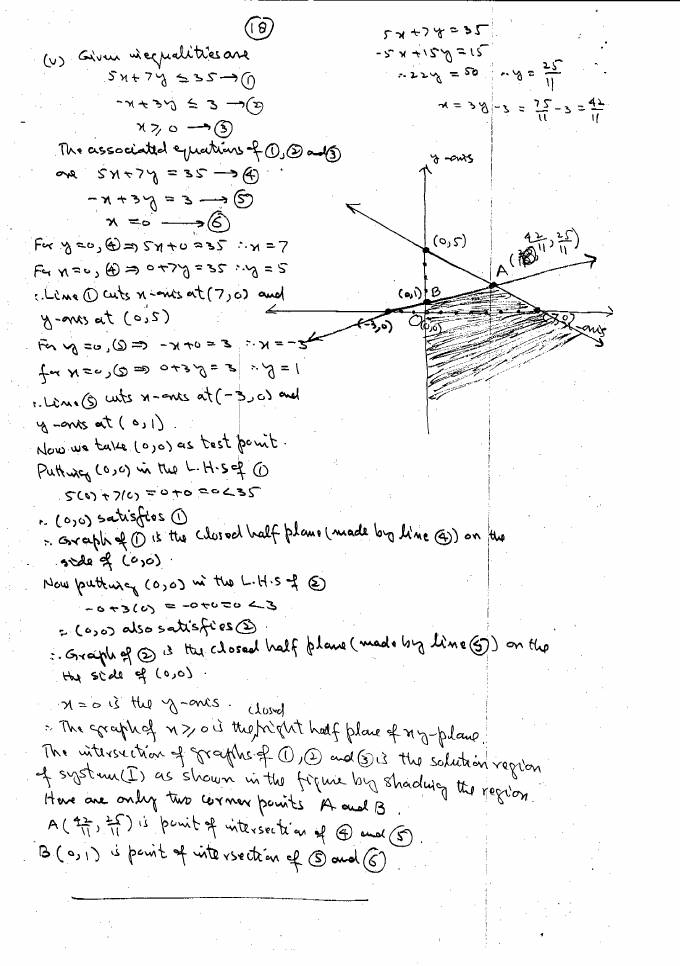 (18)
(v) Given inequalities are
5x+7y ≤ 35 → ①
-x+3y ≤ 3 → ②
x ≥ 0 → ③
The associated equations of ①, ② and ③
are 5x+7y = 35 → ④
-x+3y = 3 → ⑤
x = 0 → ⑥
For y=0, ④ ⇒ 5x+0=35 ∴ x=7
For x=0, ④ ⇒ 0+7y=35 ∴ y=5
∴ Line ① cuts x-axis at (7,0) and
y-axis at (0,5)
For y=0, ⑤ ⇒ -x+0=3 ∴ x=-3
for x=0, ⑤ ⇒ 0+3y=3 ∴ y=1
∴ Line ⑤ cuts x-axis at (-3,0) and
y-axis at (0,1).
Now we take (0,0) as test point.
Putting (0,0) in the L.H.S of ①
5(0)+7(0) = 0+0 = 0 < 35
∴ (0,0) satisfies ①
∴ Graph of ① is the closed half plane (made by line ④) on the
side of (0,0).
Now putting (0,0) in the L.H.S of ②
-0+3(0) = -0+0=0 < 3
∴ (0,0) also satisfies ②
∴ Graph of ② is the closed half plane (made by line ⑤) on the
the side of (0,0).
x=0 is the y-axis.
closed
∴ The graph of x ≥ 0 is the right half plane of xy-plane.
The intersection of graphs of ①, ② and ③ is the solution region
of system (I) as shown in the figure by shading the region.
Here are only two corner points A and B.
A(42/11, 25/11) is point of intersection of ④ and ⑤.
B(0,1) is point of intersection of ⑤ and ⑥
5x+7y=35
-5x+15y=15
∴ 22y = 50 ∴ y = 25/11
x = 3y-3 = 75/11 - 3 = 42/11
y-axis
(0,5)
A (42/11, 25/11)
(0,1) B
(-3,0) O (0,0) (7,0) x-axis